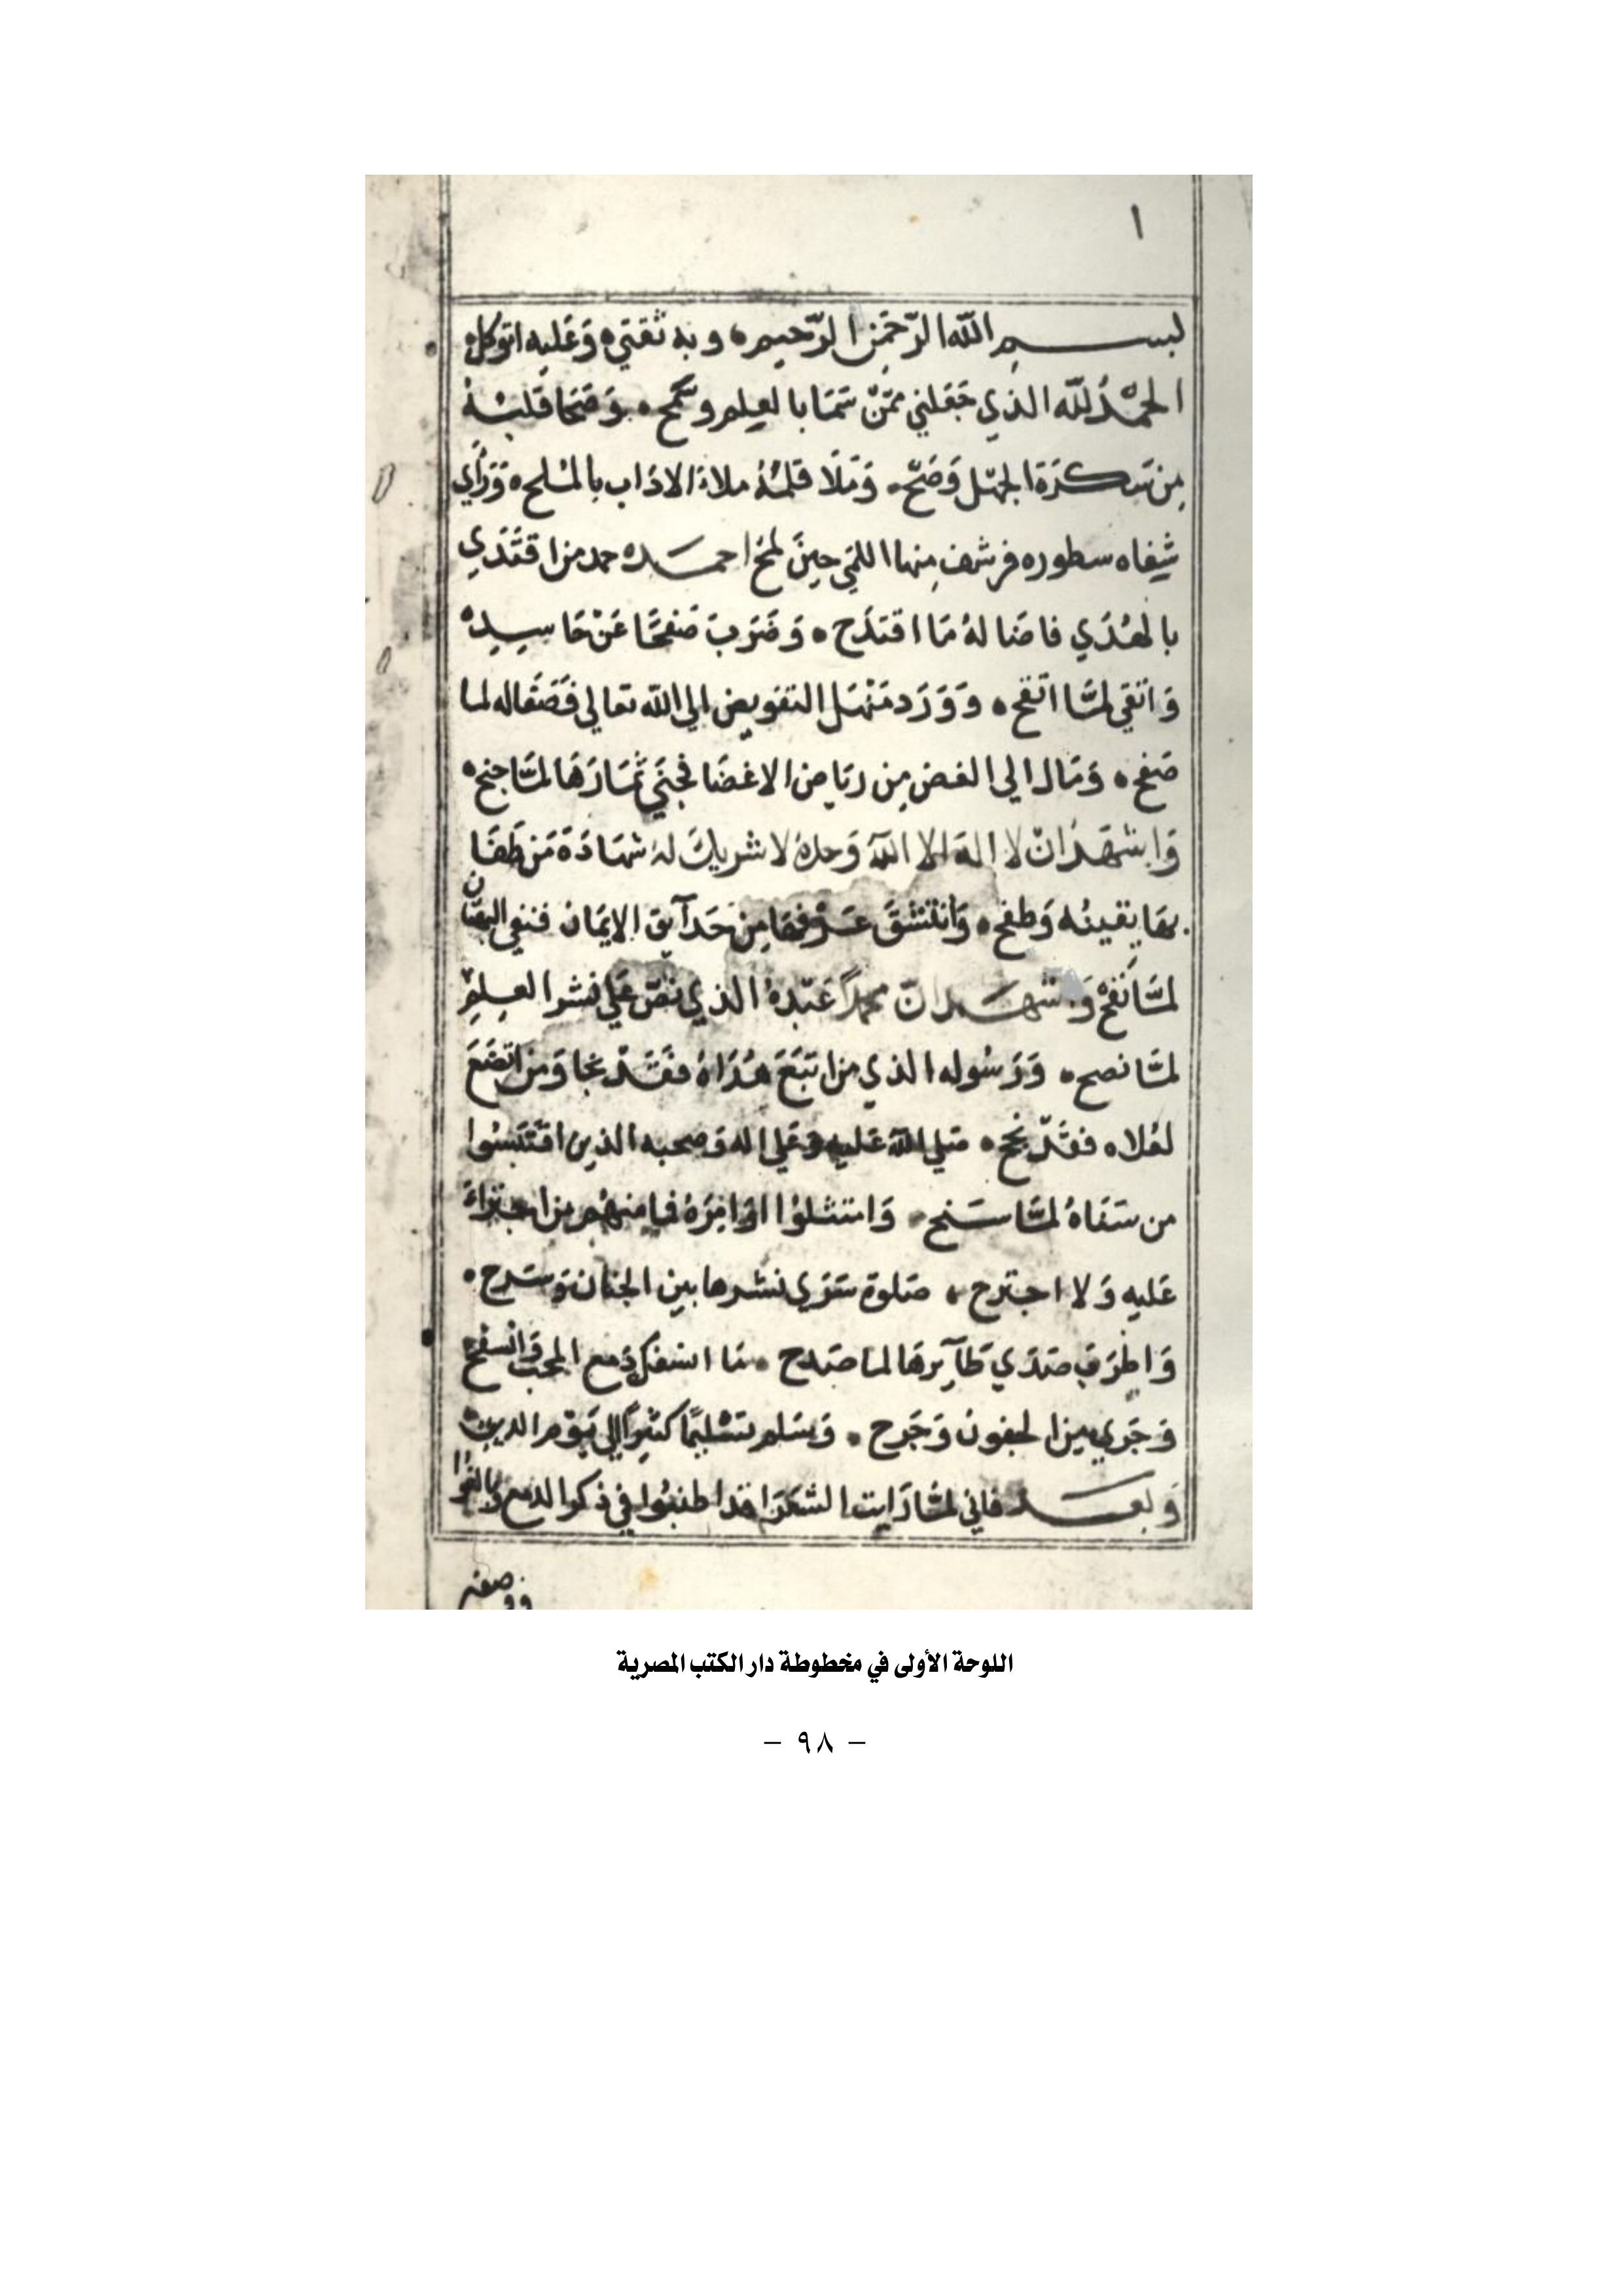 ١
بسم الله الرّحمَن الرّحيم ه وبه ثقتي ه وَعَليه اتوكل ه
الحمْدُ للّه الذي جَعَلني ممّنْ سَمَا بالعِلم وسَمح ه وَصَحَا قلبُهُ
مِن سَكرَة الجهْل وَصَحّ ه وَمَلَا قلمُهُ ملاءَ الاداب بالملح ه وَرَأي
شِفاه سطوره فرشف مِنها اللمَي حِينَ لمح احمده حمد من اقتَدَي
بالهُدَي فاضا لهُ مَا اقتدَح ه وَضَرَبَ صَفحًا عَنْ حَاسِدِه
وَاتقي لمَّا اتقح ه وَوَرَد مَنْهَل التفويض الي الله تعالي فَصَفَا له لما
صَفح ه وَمَال الي الغض مِن ريَاض الاغضَا فجنَي ثمَارَهَا لمَّا جنح ه
وَاشهَدُ انْ لا اله الا الله وَحدهُ لا شريكَ لهُ شهَادَة مَن طَفَا
بهَا يقينُه وَطفح ه وَانْتشَقَ عَرْفهَا مِن حَدآيق الايمَان فنفي البهتان
لمَّا نَفحْ وَاشهَد انّ محمداً عَبْدهُ الذي نصّ عَلي نشر العِلمِ
لمَّا نصح ه وَرَسُوله الذي من اتبَعَ هُدَاهُ فقَدْ نجا وَمن اتضَعَ
لعُلاه فقَدْ نجح ه صَلي الله عَليه وَعَلي اله وَصحبه الذين اقتَبَسُوا
من سَنَاهُ لمَّا سَنح ه وَامتثلوُا اوَامِرَهُ فما منهُم من اجترَاءَ
عَليه وَلا اجترح ه صَلوة سَرَي نشرهَا بين الجنان وَسَرح ه
وَاطرَب صَدَي طَآيرهَا لما صَدح ه مَا اسفك دَمع المحب وَانسفح
وَجَرَي من الجفون وَجَرح ه وَسَلم تسْليمًا كثيرًا الي يَوْم الدين ه
وَبعَد فاني لمَّا رَايت الشعَرَا قد اطنبُوا في ذكر الدمع وَبالغوُا
ووصفه
اللوحة الأولى في مخطوطة دار الكتب المصرية
– ٩٨ –